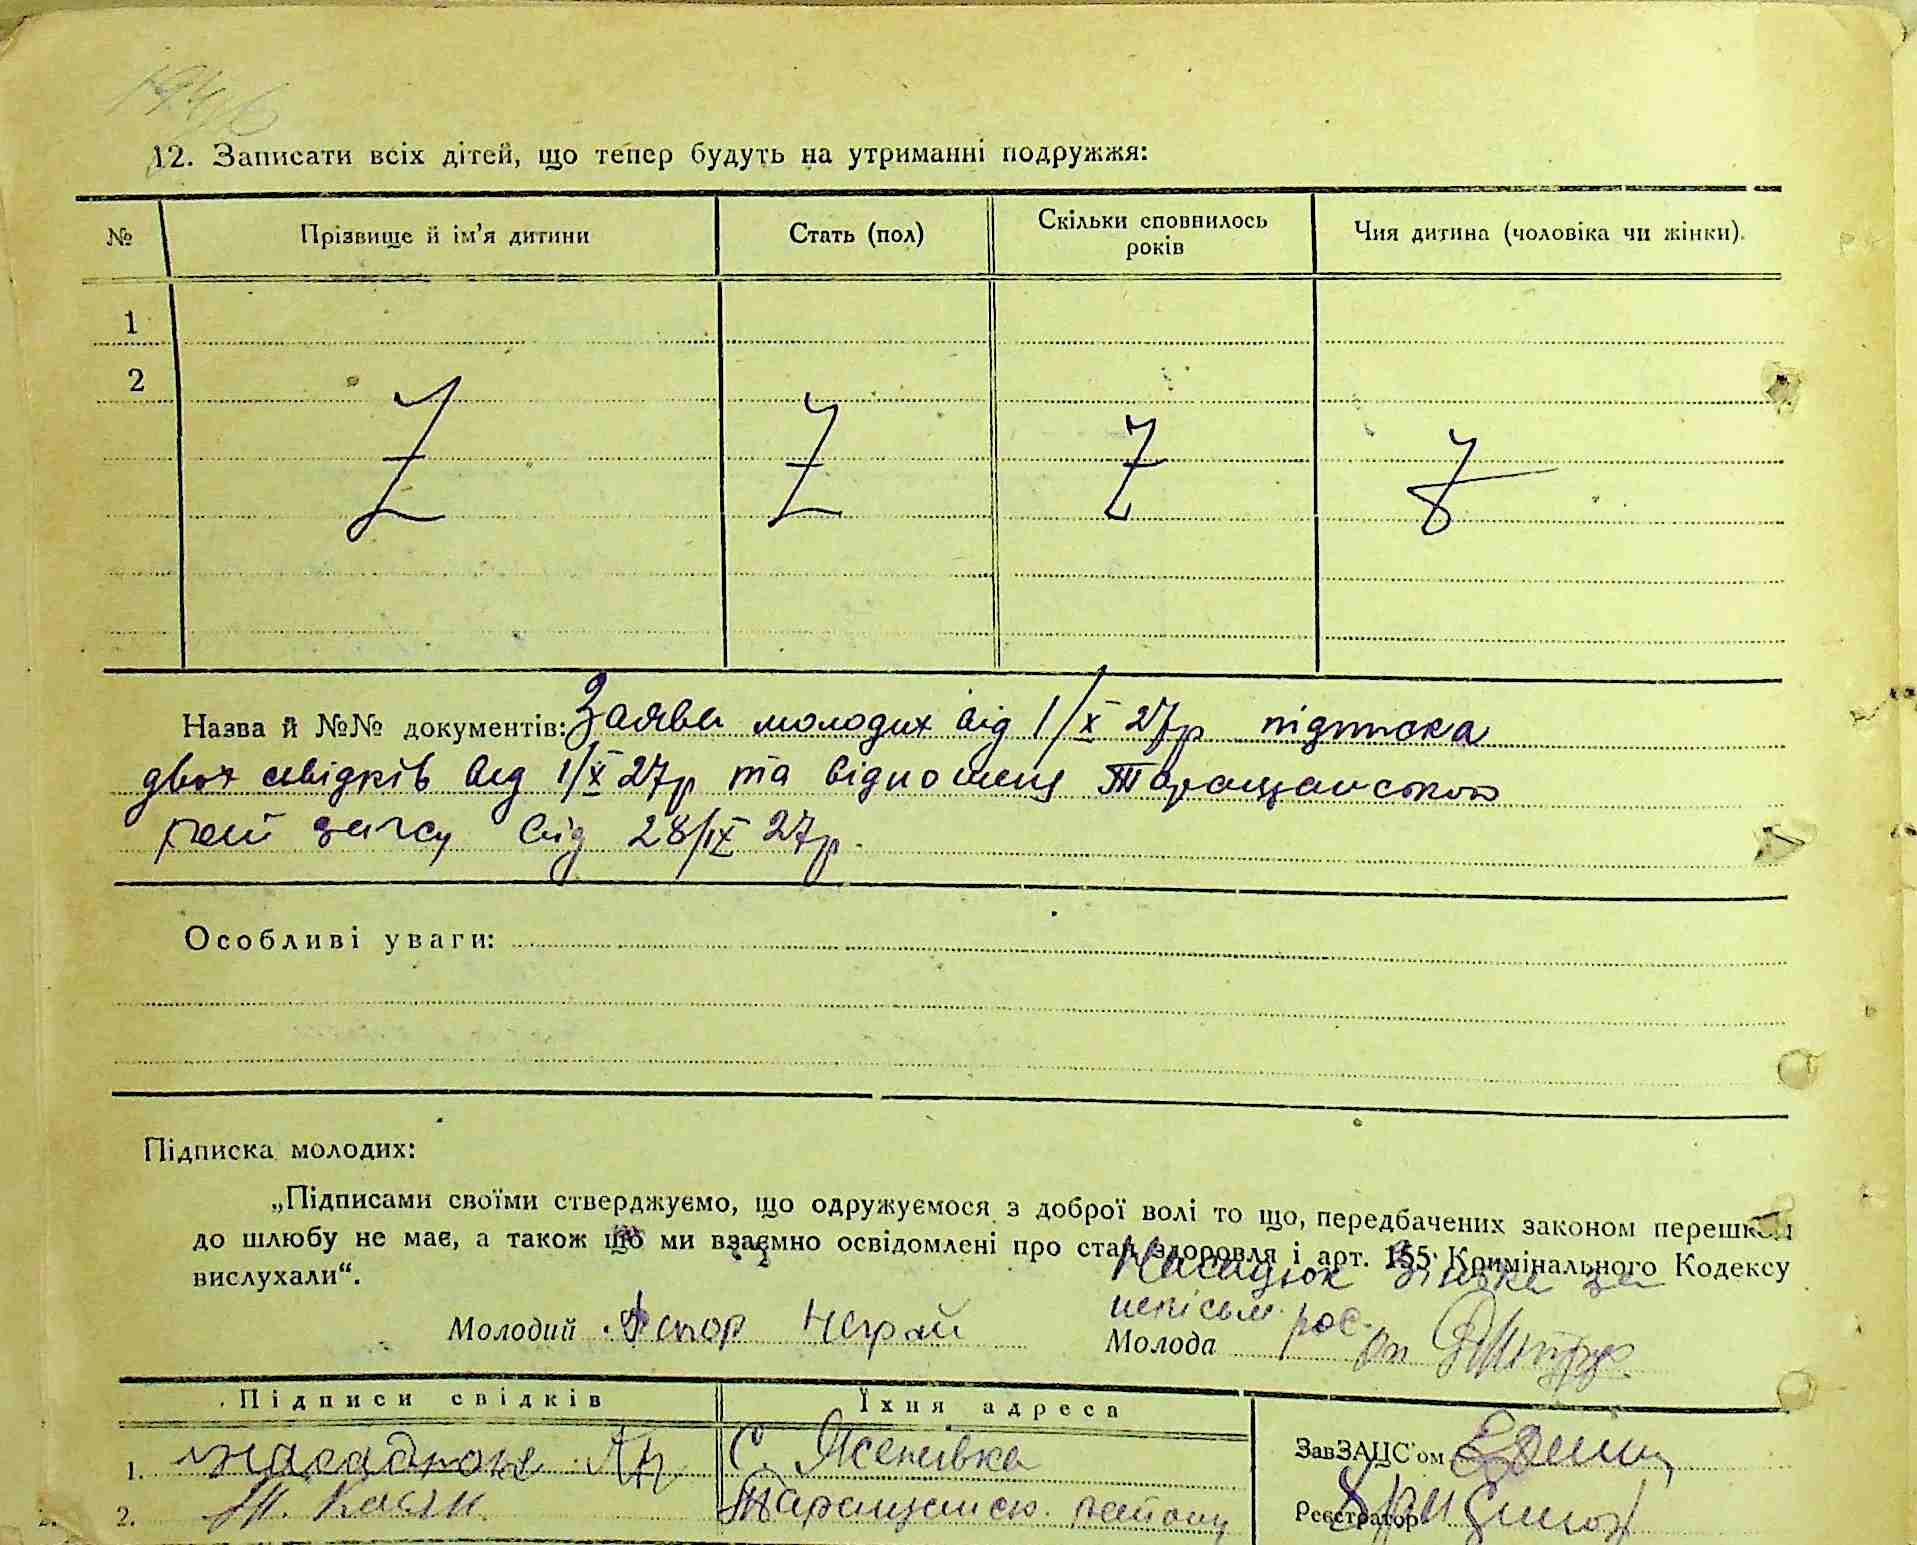 1946
12. Записати всіх дітей, що тепер будуть на утриманні подружжя:
№ Прізвище й ім'я дитини Стать (пол) Скільки сповнилось років Чия дитина (чоловіка чи жінки).
1
2
Z Z Z Z
Назва й №№ документів: Заява молодих від 1/X 27р підписка
двох свідків від 1/X 27р та відношення Таращанського
рай загсу від 28/IX 27р.
Особливі уваги:
Підписка молодих:
„Підписами своїми стверджуємо, що одружуємося з доброї волі то що, передбачених законом перешкод
до шлюбу не має, а також що ми взаємно освідомлені про стан здоровля і арт. 155 Кримінального Кодексу
вислухали“.
за
непісьм.
Молодий Неграй Молода рос.
Підписи свідків Їхня адреса
1. С. Лісенівка ЗавЗАЦС'ом
2. Таращанськ. району Реєстратор